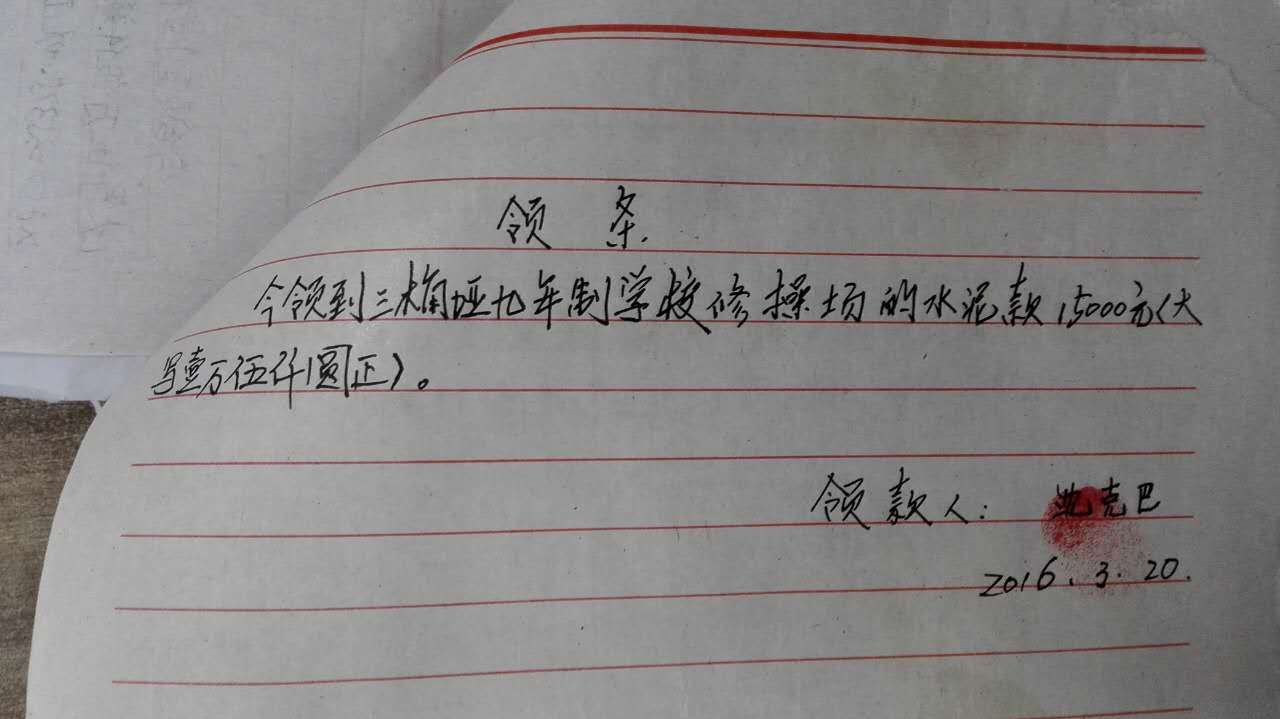 领 条
今领到三桷垭九年制学校修操场的水泥款15000元(大
写壹万伍仟圆正)。
领款人: 克巴
2016.3.20.